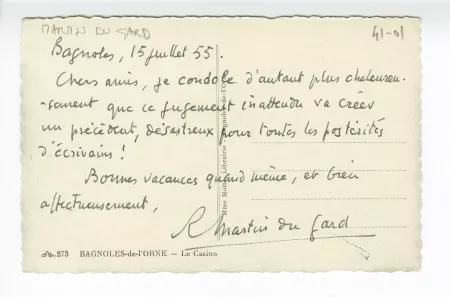 MARTIN DU GARD
41-01
Bagnoles, 15 juillet 55.
Chers amis, je condole d'autant plus chaleureu-
-sement que ce jugement inattendu va créer
un précédent, désastreux pour toutes les postérités
d'écrivains !
Bonnes vacances quand même, et bien
affectueusement,
R Martin du Gard
273 BAGNOLES-de-l'ORNE — Le Casino